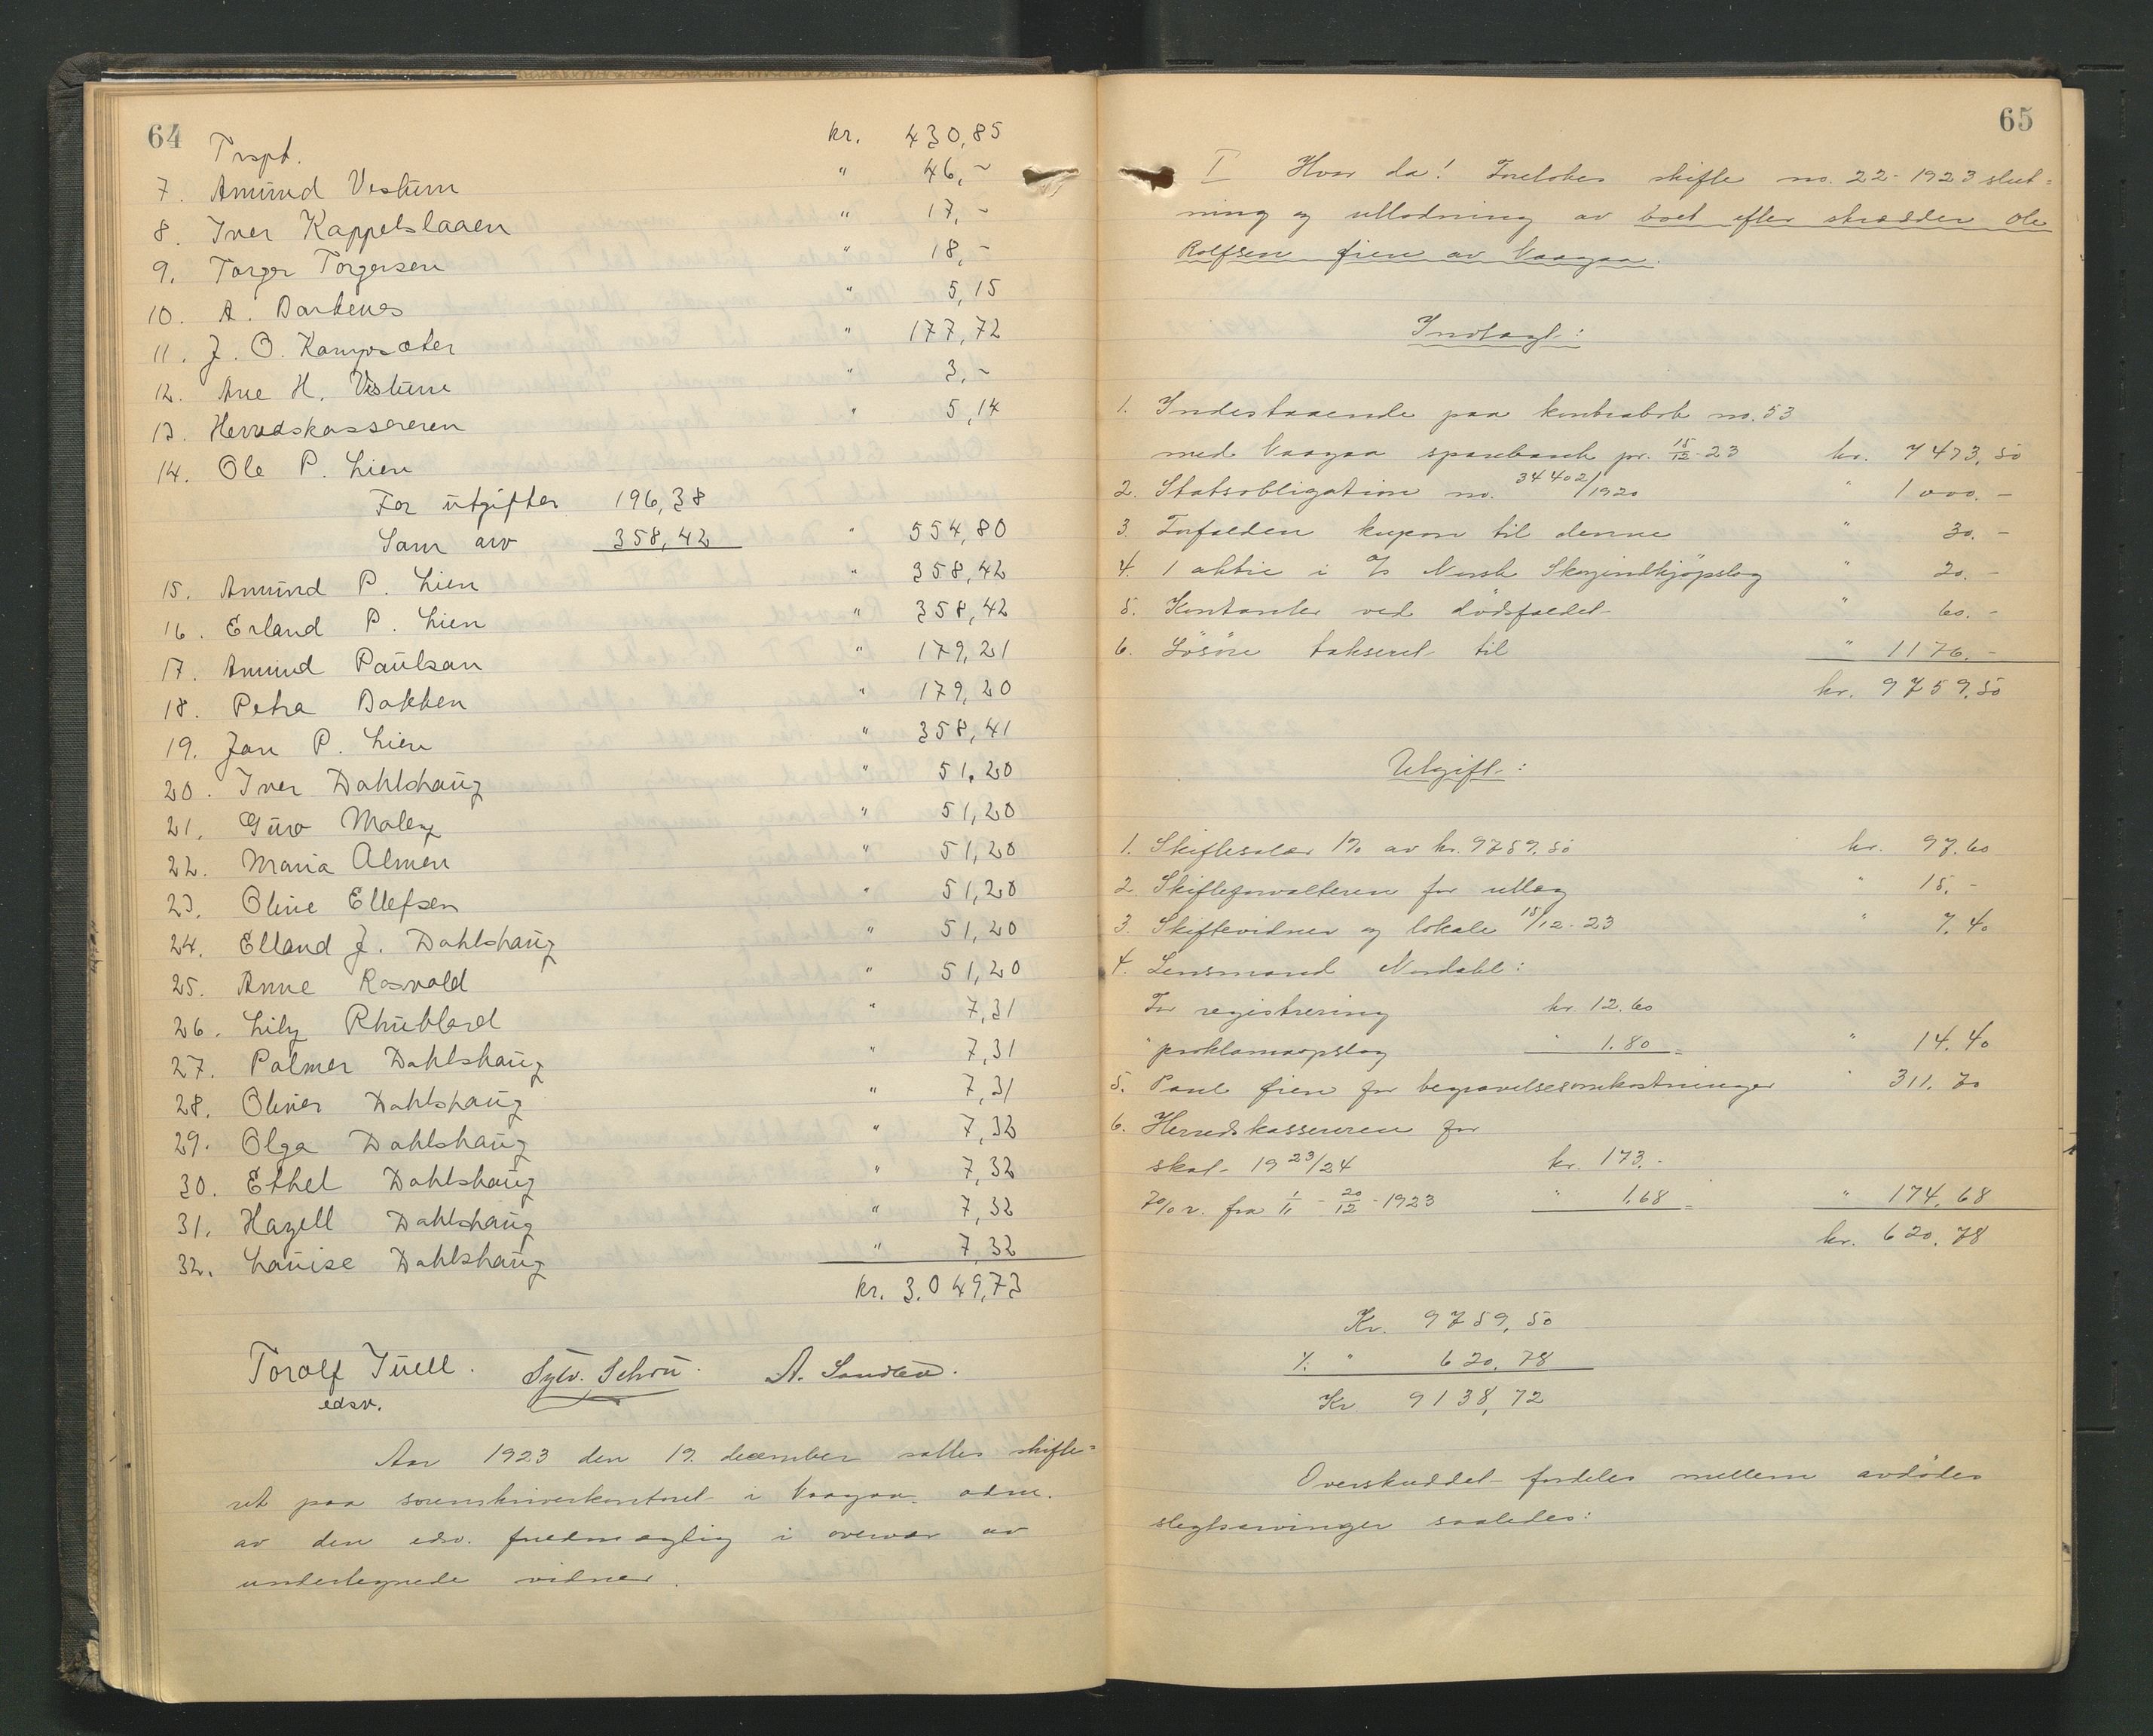 64
Trspt. kr. 430,85
7. Amund Vistum " 46,-
8. Iver Kappelslaaen " 17,-
9. Torger Torgersen " 18,-
10. A. Dark " 5,15
11. J. O. Kampsæter " 177,72
12. Ane H. Vistum " 3,-
13. Herredskassereren " 5,14
14. Ole P. Lien
For utgifter 196,38
Sam arv 358,42 " 554,80
15. Amund P. Lien " 358,42
16. Erland P. Lien " 358,42
17. Amund Paulsen " 179,21
18. Petra Bakken " 179,20
19. Jan P. Lien " 358,41
20. Iver Dahlshaug " 51,20
21. Guro Moley " 51,20
22. Maria Almen " 51,20
23. Oline Ellefsen " 51,20
24. Elland J. Dahlshaug " 51,20
25. Anne Rosvold " 51,20
26. Lily Rhublard " 7,31
27. Palmer Dahlshaug " 7,31
28. Oliver Dahlshaug " 7,31
29. Olga Dahlshaug " 7,32
30. Ethel Dahlshaug " 7,32
31. Hazell Dahlshaug " 7,32
32. Louise Dahlshaug " 7,32
kr. 3.049,73
Toralf Juell. Sylv. Schou. A. Sandbu.
edsv.
Aar 1923 den 19. december sattes skifte=
ret paa sorenskriverkontoret i Vaagaa, adm.
av den edsv. fuldmægtig i overvær av
undertegnede vidner.
65
I Hvor da! Foretokes skifte no. 22-1923 slut=
ning og utlodning av boet efter skrædder Ole
Rolfsen Øien av Vaagaa.
Indtægt:
1. Indestaaende paa kontrabok no. 53
med Vaagaa sparebank pr. 15/12-23 kr. 7473,50
2. Statsobligation no. 34402/1920 " 1000.-
3. Forfalden kupon til denne " 30.-
4. 1 aktie i A/S Norsk Skogindkjøpslag " 20.-
5. Kontanter ved dødsfaldet " 60.-
6. Løsøre takseret til " 1176.-
kr. 9759.50
Utgift:
1. Skiftesalær 1% av kr. 9759.50 kr. 97.60
2. Skifteforvalteren for utlæg " 15.-
3. Skiftevidner og lokale 15/12-23 " 7.40
4. Lensmand Nordahl:
For registrering kr. 12.60
" proklamaopslag " 1.80 = " 14.40
5. Paul Øien for begravelsesomkostninger " 311.70
6. Herredskassereren for
skat 1923/24 kr. 173.-
7% r. fra 1/11 - 20/12-1923 " 1.68 = " 174.68
kr. 620.78
Kr. 9759,50
÷ " 620.78
Kr 9138,72
Overskuddet fordeles mellem avdødes
slegtsarvinger saaledes: